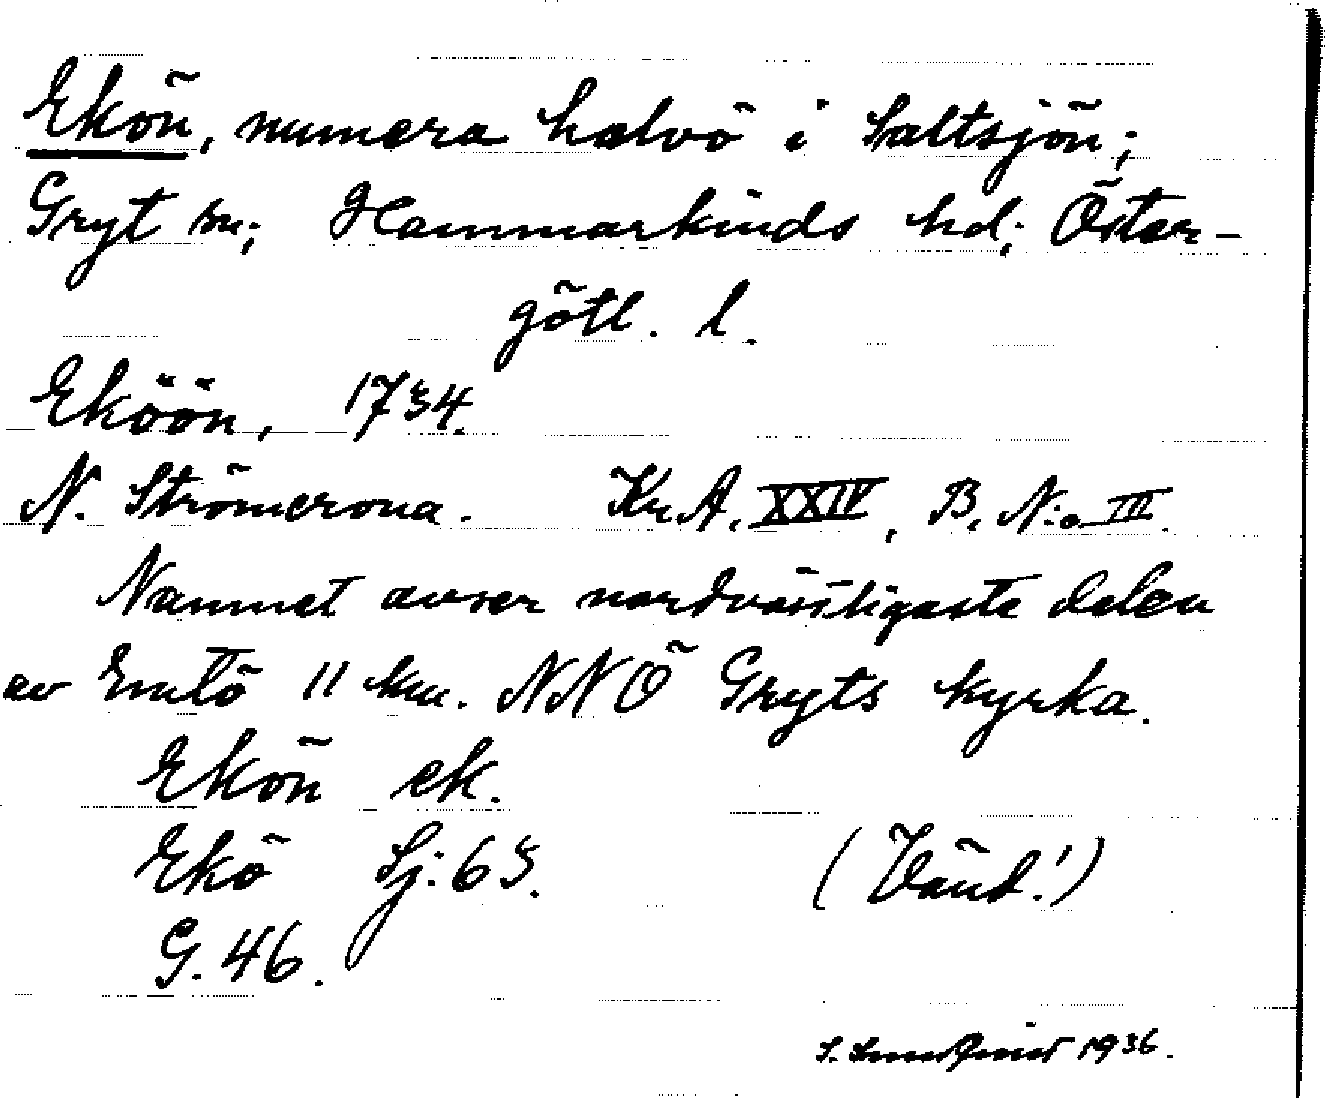 Ekön, numera halvö i Saltsjön;
Gryt sn; Hammarkinds hd; Öster-
götl. l.
Eköön, 1734.
N. Strömcrona. Kr.A. XXIV, B. N:o III.
Namnet avser nordvästligaste delen
av Emtö 11 km. NNÖ Gryts kyrka.
Ekön ek.
Ekö Sj: 65.
(Vänd!)
G. 46.
S. 1936.